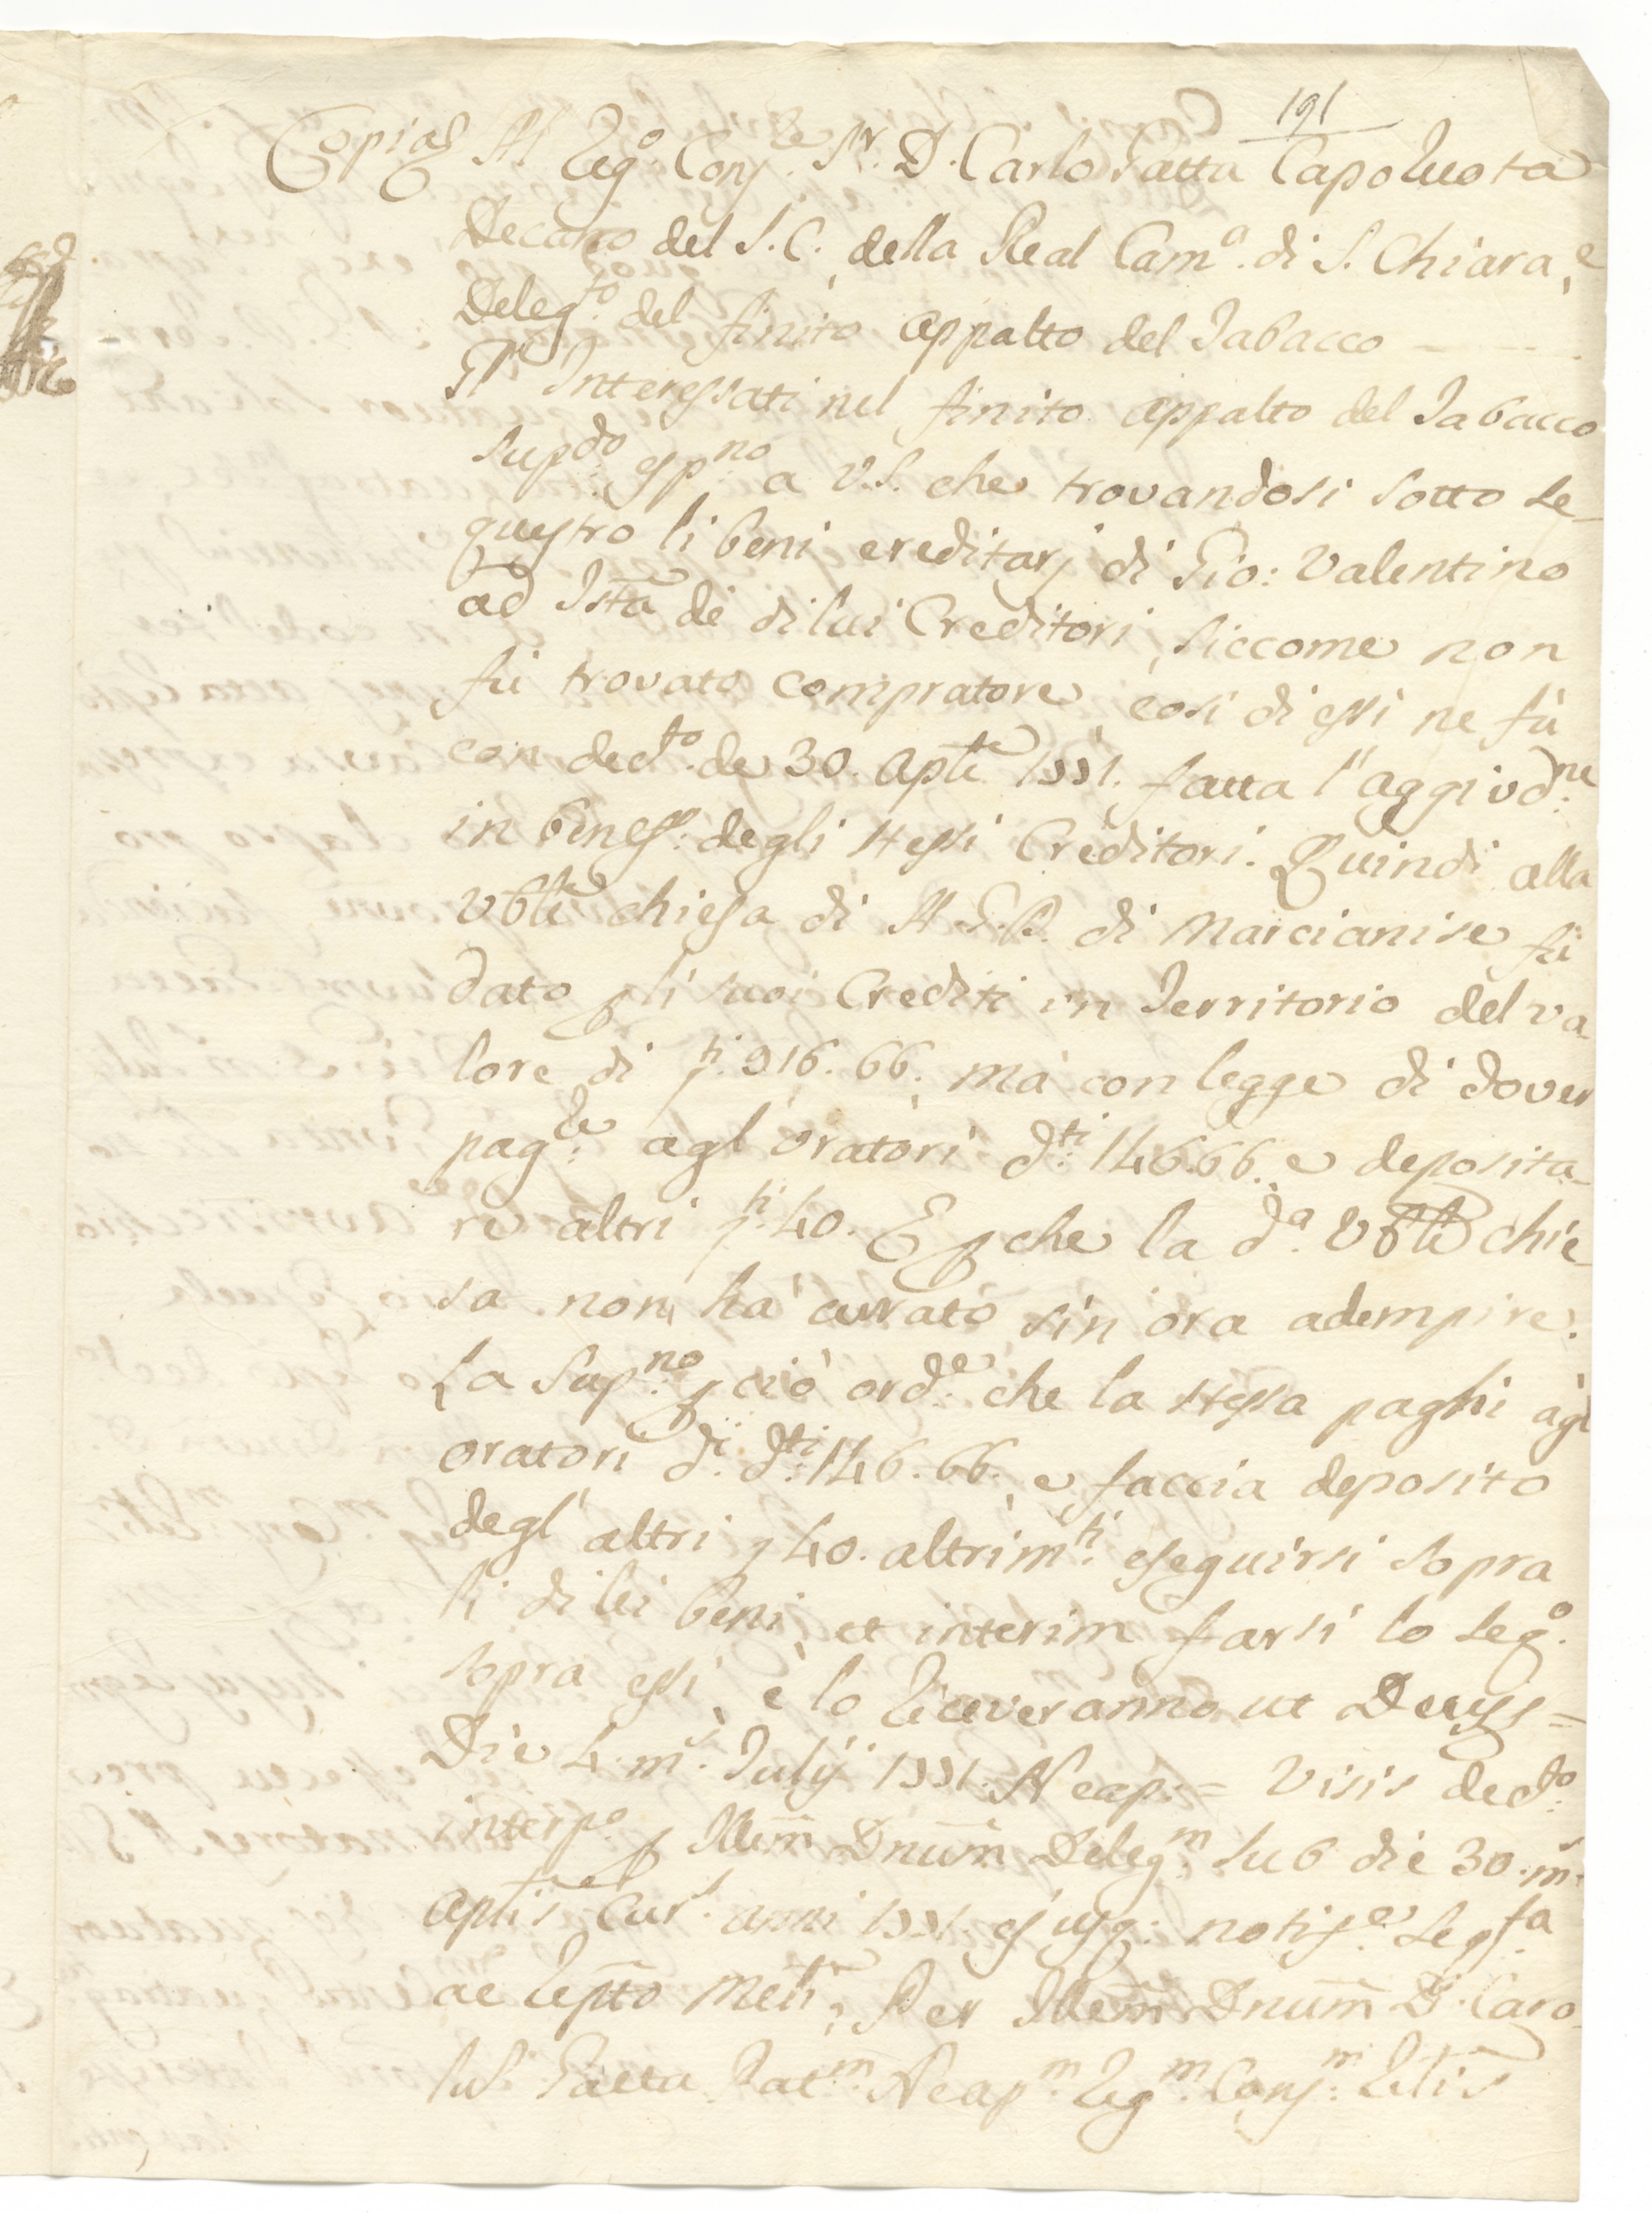 191
Copia Al Reg.o Cons.re S.r D. Carlo Gatta Capo Ruota
Decano del S. C. della Real Cam.a di S. Chiara, e
Deleg.to del finito appalto del Tabacco
Gl' Interessati nel finito appalto del Tabacco
sup.do esp.no a V.S. che trovandosi sotto se-
questro li beni ereditarj di Gio: Valentino
ad Ist.a de di lui Creditori, siccome non
fù trovato compratore, così di essi ne fù
con dec.to de 30. Ap.le 1771. fatta l' aggiud.ne
in benef.o degli stessi Creditori. Quindi alla
V'ble chiesa di A. G. P. di Marcianise fù
dato p li suoi Crediti un Territorio del va
lore di d.ti 916. 66. mà con legge di dover
pag.re agl' oratori d.ti 146.66. e deposita-
re altri d.ti 40. E p che la d.a V'ble chie-
sa non hà curato sin ora adempire.
La sup.no p ciò ord.e che la stessa paghi agl
oratori d.i d.ti 146. 66. e faccia deposito
degl' altri 40. altrim.ti eseguirsi sopra
li di lei beni, et interim farsi lo seq.o
sopra essi, e lo riceveranno ut Deus =
Die 4. m.s Julij 1771. Neap. = Visis dec.to
interp.o p Ill'em D'num Deleg.m sub die 30. m.s
Ap'lis Cur.s anni 1771. ejusq: notif.e seq.ta
ac rep'to Meli.s, Per Ill'em D'num D. Caro-
lu' Gatta Pat.m Neap.m Reg.m Cons.m